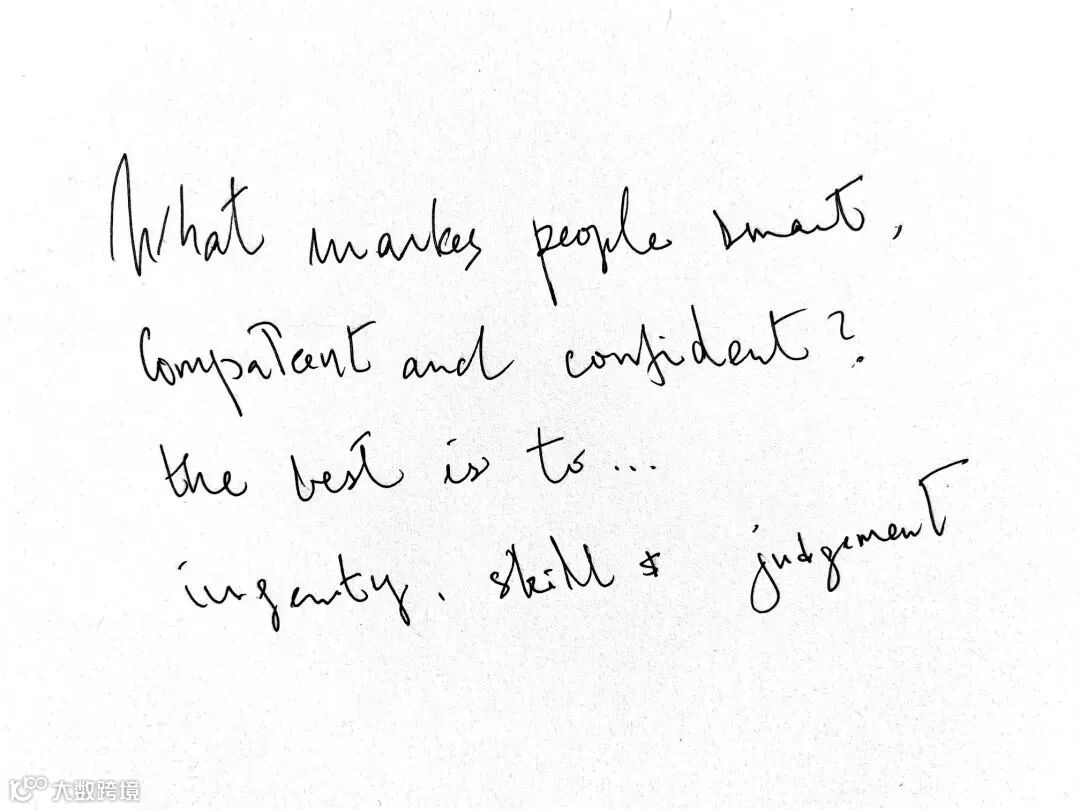 What markes people smart,
Compatent and confident?
the best is to...
inganty. skill & judgement
大数跨境